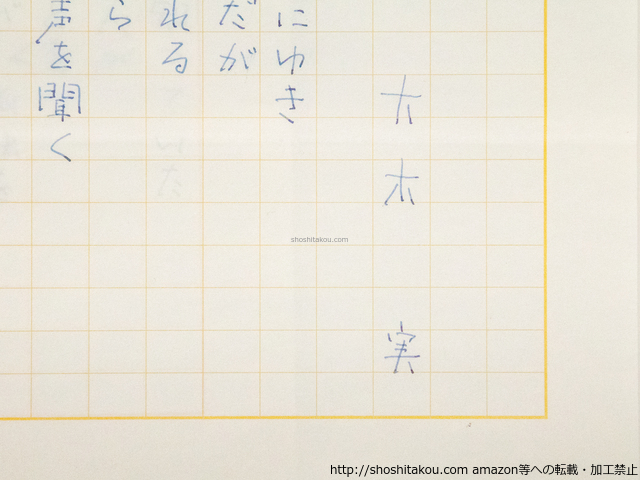 大木　実
にゆき
だが
れる
ら
声を聞く
shoshitakou.com
http://shoshitakou.com amazon等への転載・加工禁止